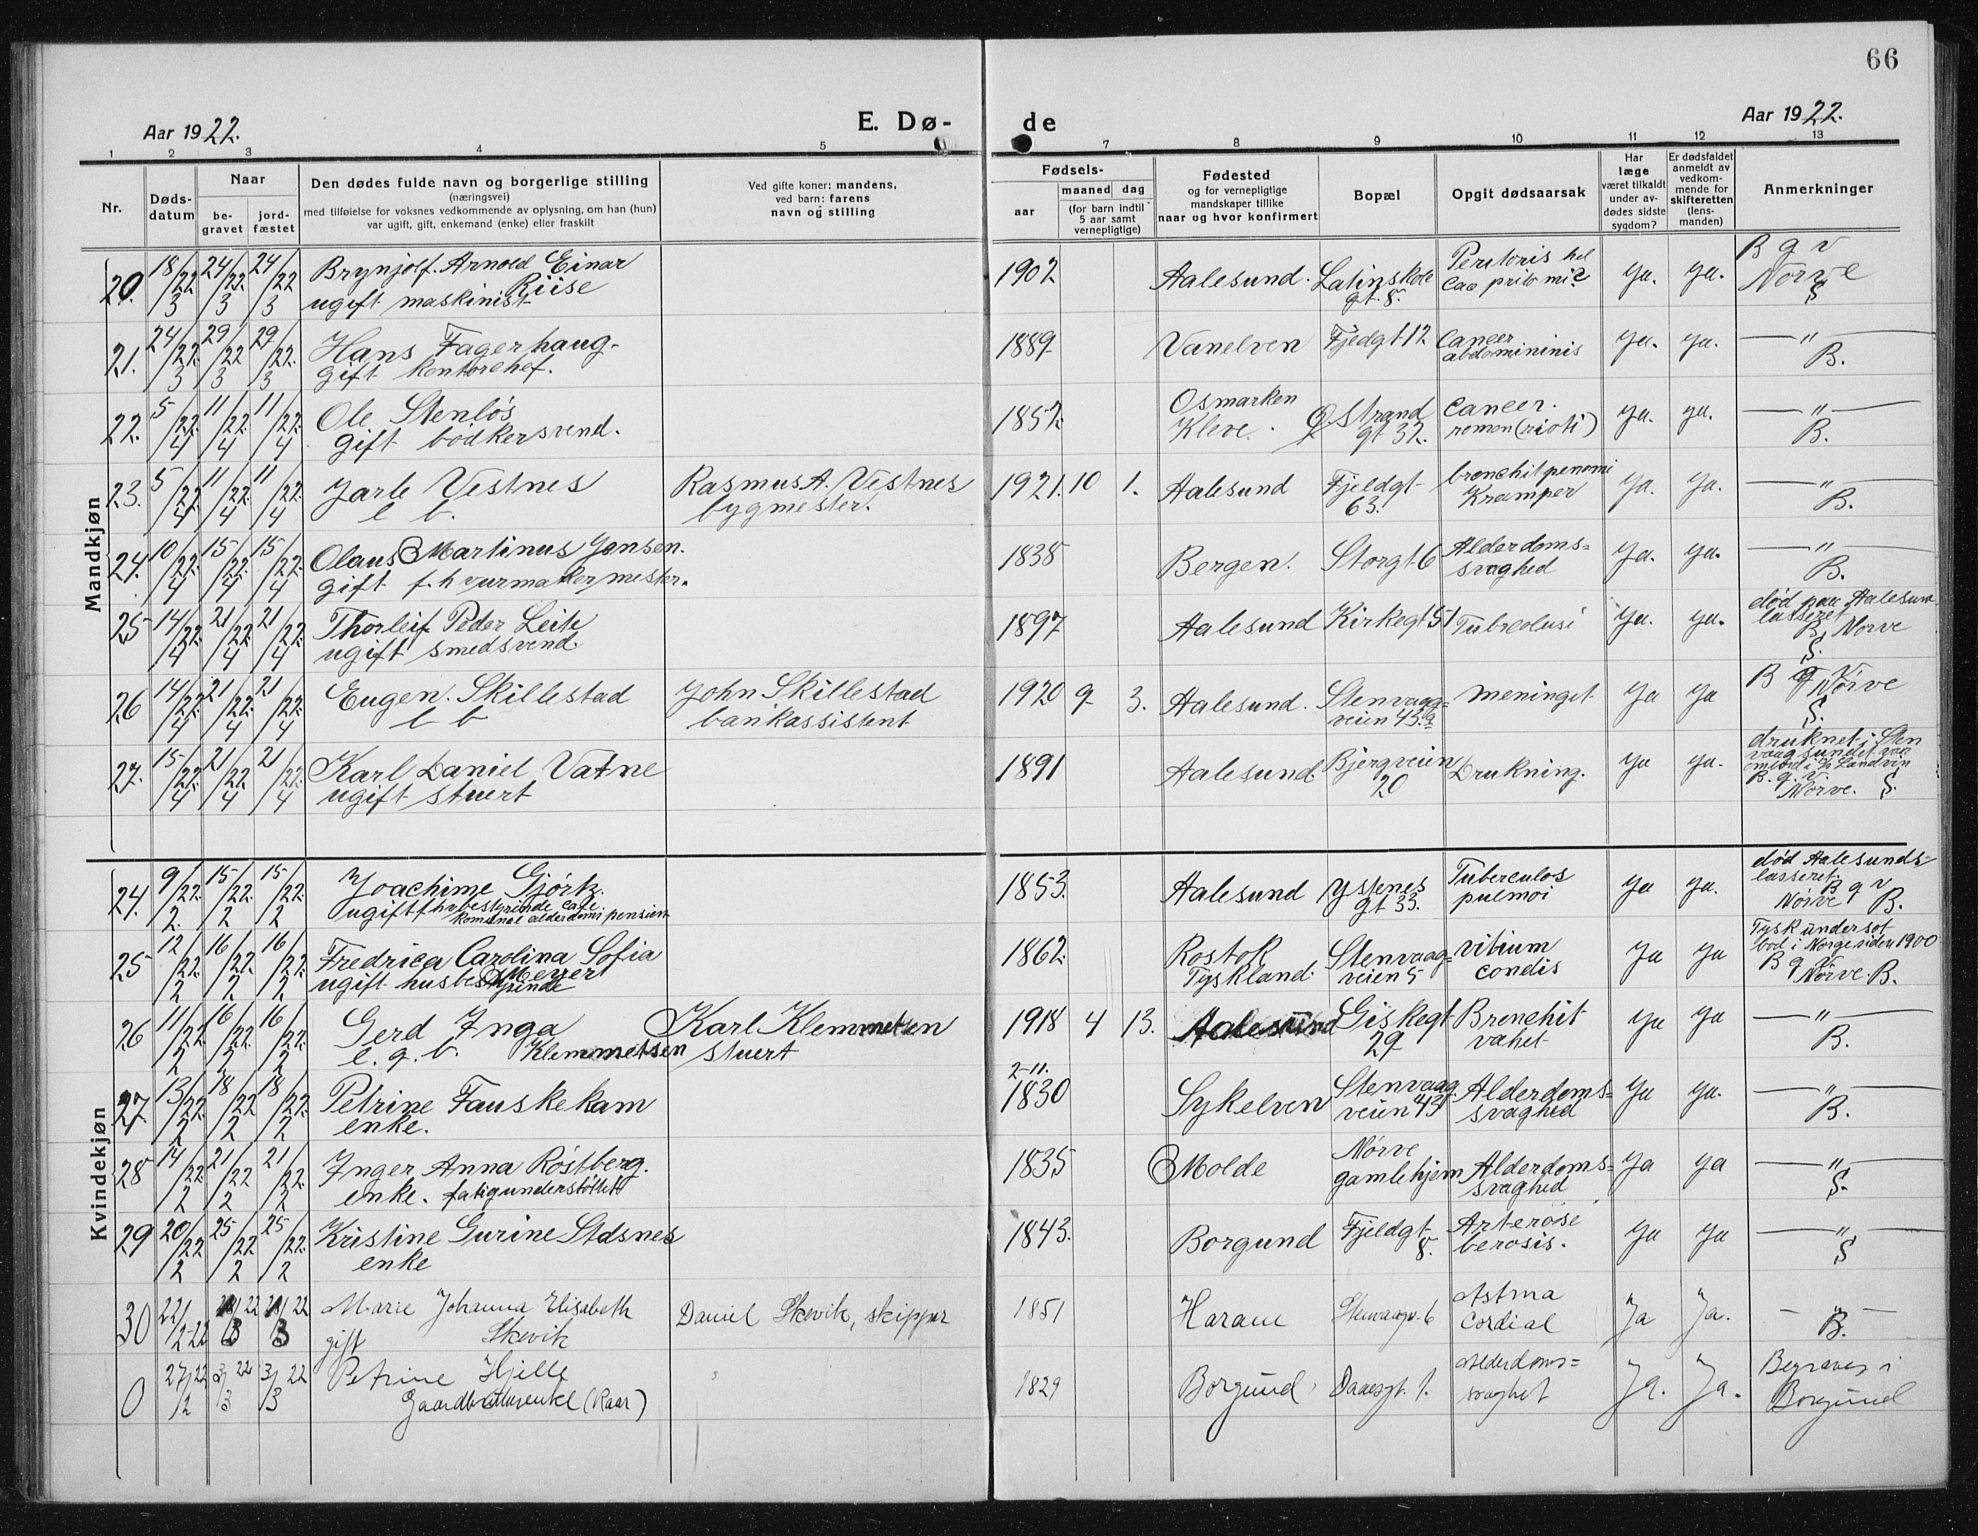 66
Aar 1922.
E. Dø-
de
Aar 1922.
1 2 3 4 5 7 8 9 10 11 12 13
Nr.
Døds-
datum
Naar
be-
gravet
jord-
fæstet
Den dødes fulde navn og borgerlige stilling
(næringsvei)
med tilføielse for voksnes vedkommende av oplysning, om han (hun)
var ugift, gift, enkemand (enke) eller fraskilt
Ved gifte koner: mandens,
ved barn: farens
navn og stilling
Fødsels-
aar
maaned dag
(for barn indtil
5 aar samt
vernepligtige)
Fødested
og for vernepligtige
mandskaper tillike
naar og hvor konfirmert
Bopæl
Opgit dødsaarsak
Har
læge
været tilkaldt
under av-
dødes sidste
sygdom?
Er dødsfaldet
anmeldt av
vedkom-
mende for
skifteretten
(lens-
manden)
Anmerkninger
Mandkjøn
20. 18/3 22 24/3 22 24/3 22 Brynjolf Arnold Einar Riise
ugift maskinist
1902 Aalesund. Latinskole gt. 8. ja. ja. B g v
Nörve
S
21. 24/3 22. 29/3 22 29/3 22. Hans Fagerhaug.
gift kontorchef.
1889 Vanelven Fjedgt 12 Cancer
abdomininis ja. ja. — " —
B.
22. 5/4 22. 11/4 22. 11/4 22. Ole Stenløs
gift bödkersvend.
1852 Osmarken
Kleve. Ø Strand
gt 32. Cancer. ja. ja. — " —
B.
23. 5/4 22. 11/4 22. 11/4 22. Jarle Vestnes
e b.
Rasmus A. Vestnes
bygmester.
1921. 10 1. Aalesund Fjeldgt
63. Kramper ja. ja. — " —
B.
24. 10/4 22. 15/4 22. 15/4 22. Olaus Martinus Jensen.
gift f.h.v urmakermester.
1838 Bergen. Storgt 6 Alderdoms=
svaghed ja. ja. — " —
B.
25 14/4 22. 21/4 22. 21/4 22. Thorleif Peder Leite
ugift smedsvend.
1897 Aalesund Kirkegt 51 ja. ja. død paa Aalesund
lasseret
B Nörve
S.
26 14/4 22. 21/4 22. 21/4 22. Eugen. Skillestad
e b
John Skillestad
bankassistent
1920 9 3. Aalesund. Stenvaag=
veien 43. meninget ja ja B g v
Nörve
S.
27. 15/4 22. 21/4 22 21/4 22. Karl Daniel Vatne
ugift stuert
1891 Aalesund Bjergveien
20 Drukning. ja ja. druknet i Sten
vaagsundet
B g v.
Nörve. S.
Kvindekjøn
24. 9/2 22. 15/2 22. 15/2 22. Joachime Gjörtz.
ugift f.h.v bestyrinde cafe.
komunal alderdoms pension
1853. Aalesund Ystenes
gt 33. Tuberculos
pulmoi ja ja. død Aalesunds-
lasseret.
B g v
Nörve B.
25 12/2 22. 16/2 22. 16/2 22. Fredrica Carolina Sofia
Meyer
ugift husbestyrinde
1862. Rostok
Tyskland. Stenvaag=
veien 5 vitium
condis ja ja Tysk undersot
bod i Norge siden 1900
B g v
Nörve. B.
26 11/2 22 16/2 22. 16/2 22. Gerd Inga
e. g. b. Klemmetsen
Karl Klemmetsen
stuert
1918 4 13. Aalesund Giskegt
29 Bronchit ja ja — " —
B.
27 13/2 22. 18/2 22 18/2 22. Petrine Fauskekam
enke.
2-11.
1830 Sykelven Stenvaag
veien 43 Alderdoms=
svaghed ja ja. — " —
B.
28 14/2 22. 21/2 22 21/2 22. Inger Anna Röstberg.
enke. fatigunderstöttet
1835 Molde Nörve
gamlehjem Alderdoms=
svaghed ja ja — " —
S.
29 20/2 22 25/2 22 25/2 22. Kristine Gurine Stdsnes
enke
1843. Borgund Fjeldgt
8. ja ja — " —
S
30 22/2-22 Marie Johanna Elisabeth
gift Skevik
Daniel Skevik, skipper
1851 Haram Stenvaagv. 6 Astma
Cordial Ja Ja. — " —
B.
0 27/2 22 3/3 22 3/3 22 Petrine Hjelle
(Raar)
1829 Borgund Daaesgt. 1. Alderdoms=
svaghet Ja. Ja. Begraves i
Borgund